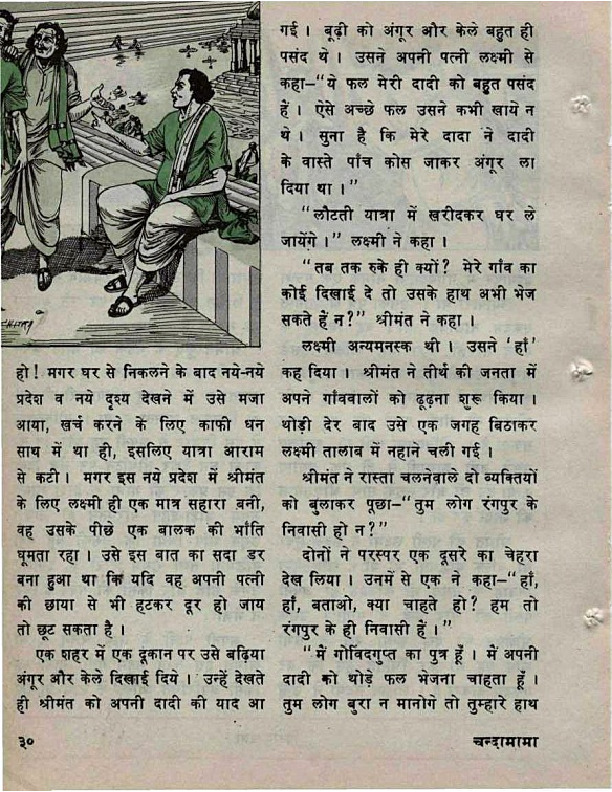 CHITRA
हो! मगर घर से निकलने के बाद नये-नये
प्रदेश व नये दृश्य देखने में उसे मजा
आया, खर्च करने के लिए काफी धन
साथ में था ही, इसलिए यात्रा आराम
से कटी। मगर इस नये प्रदेश में श्रीमंत
के लिए लक्ष्मी ही एक मात्र सहारा बनी,
वह उसके पीछे एक बालक की भाँति
घूमता रहा। उसे इस बात का सदा डर
बना हुआ था कि यदि वह अपनी पत्नी
की छाया से भी हटकर दूर हो जाय
तो छूट सकता है।
एक शहर में एक दूकान पर उसे बढ़िया
अंगूर और केले दिखाई दिये। उन्हें देखते
ही श्रीमंत को अपनी दादी की याद आ
गई। बूढ़ी को अंगूर और केले बहुत ही
पसंद थे। उसने अपनी पत्नी लक्ष्मी से
कहा-"ये फल मेरी दादी को बहुत पसंद
हैं। ऐसे अच्छे फल उसने कभी खाये न
थे। सुना है कि मेरे दादा ने दादी
के वास्ते पाँच कोस जाकर अंगूर ला
दिया था।"
"लौटती यात्रा में खरीदकर घर ले
जायेंगे।" लक्ष्मी ने कहा।
"तब तक रुके ही क्यों? मेरे गाँव का
कोई दिखाई दे तो उसके हाथ अभी भेज
सकते हैं न?" श्रीमंत ने कहा।
लक्ष्मी अन्यमनस्क थी। उसने 'हाँ'
कह दिया। श्रीमंत ने तीर्थ की जनता में
अपने गाँववालों को ढूढ़ना शुरू किया।
थोड़ी देर बाद उसे एक जगह बिठाकर
लक्ष्मी तालाब में नहाने चली गई।
श्रीमंत ने रास्ता चलनेवाले दो व्यक्तियों
को बुलाकर पूछा-"तुम लोग रंगपुर के
निवासी हो न?"
दोनों ने परस्पर एक दूसरे का चेहरा
देख लिया। उनमें से एक ने कहा-"हाँ,
हाँ, बताओ, क्या चाहते हो? हम तो
रंगपुर के ही निवासी हैं।"
"मैं गोविंदगुप्त का पुत्र हूँ। मैं अपनी
दादी को थोड़े फल भेजना चाहता हूँ।
तुम लोग बुरा न मानोगे तो तुम्हारे हाथ
३०
चन्दामामा